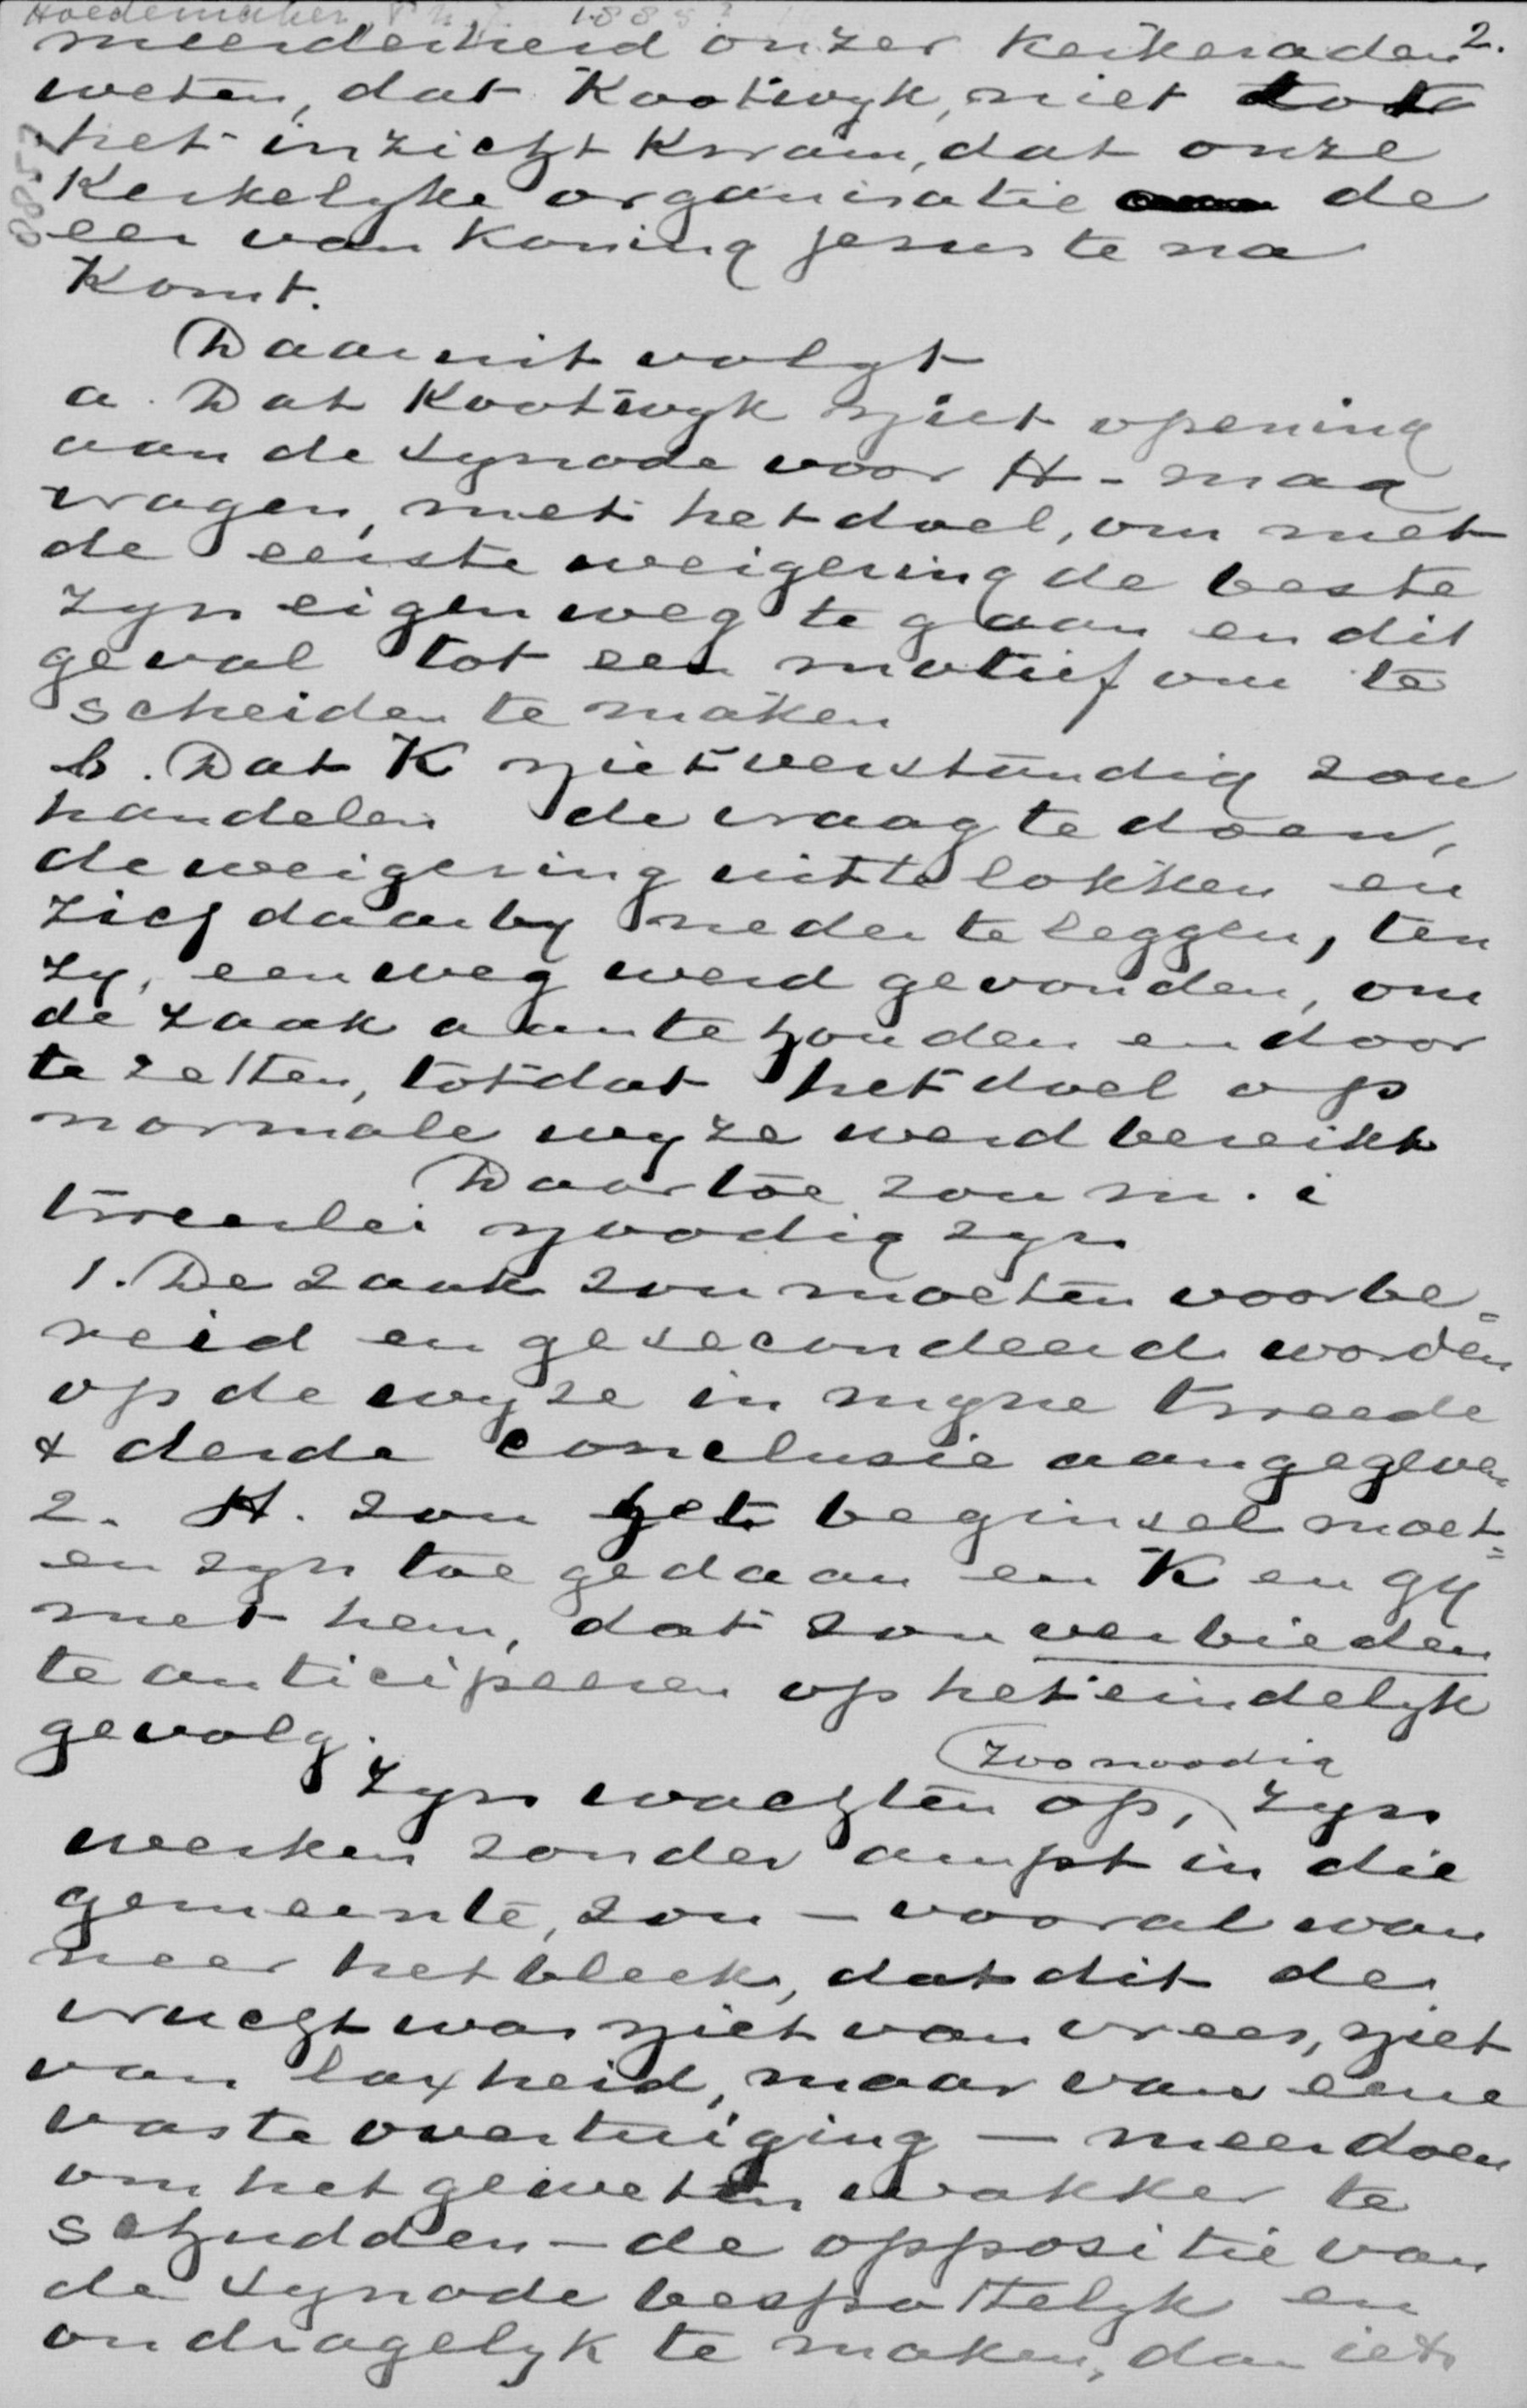 Hoedemaker, Ph. J. 1885?
2.
meerderheid onzer kerkeraden
weten, dat Kootwyk, niet tot
het inzicht kwam, dat onze
Kerkelyke organisatie de
eer van Koning Jesus te na
komt.
Daaruit volgt
a. Dat Kootwyk niet opening
aan de synode voor H - mag
vragen, met het doel, om met
de eerste weigering de beste
zyn eigen weg te gaan en dit
geval tot een motief om te
scheiden te maken
b. Dat K niet verstandig zou
handelen de vraag te doen,
de weigering uit te lokken en
zich daarby neder te leggen, ten
zy, een weg werd gevonden, om
de zaak aan te houden en door
te zetten, totdat het doel op
normale wyze werd bereikt
Daartoe zou m. i
tweeerlei noodig zyn
1. De zaak zou moeten voorbe=
reid en gesecondeerd worden
op de wyze in myne tweede
& derde conclusie aangegeven
2. H. zou het beginsel moet=
en zyn toegedaan en K en gy
met hem, dat zou verbieden
te anticipeeren op het eindelyk
gevolg.
zoo noodig
Zyn wachten op, zyn
werken zonder ampt in die
gemeente, zou — vooral wan
neer het bleek, dat dit de
vrucht was niet van vrees, niet
van laxheid, maar van eene
vaste overtuiging — meer doen
om het geweten wakker te
schudden - de oppositie van
de synode bespottelyk en
ondragelyk te maken, dan iets